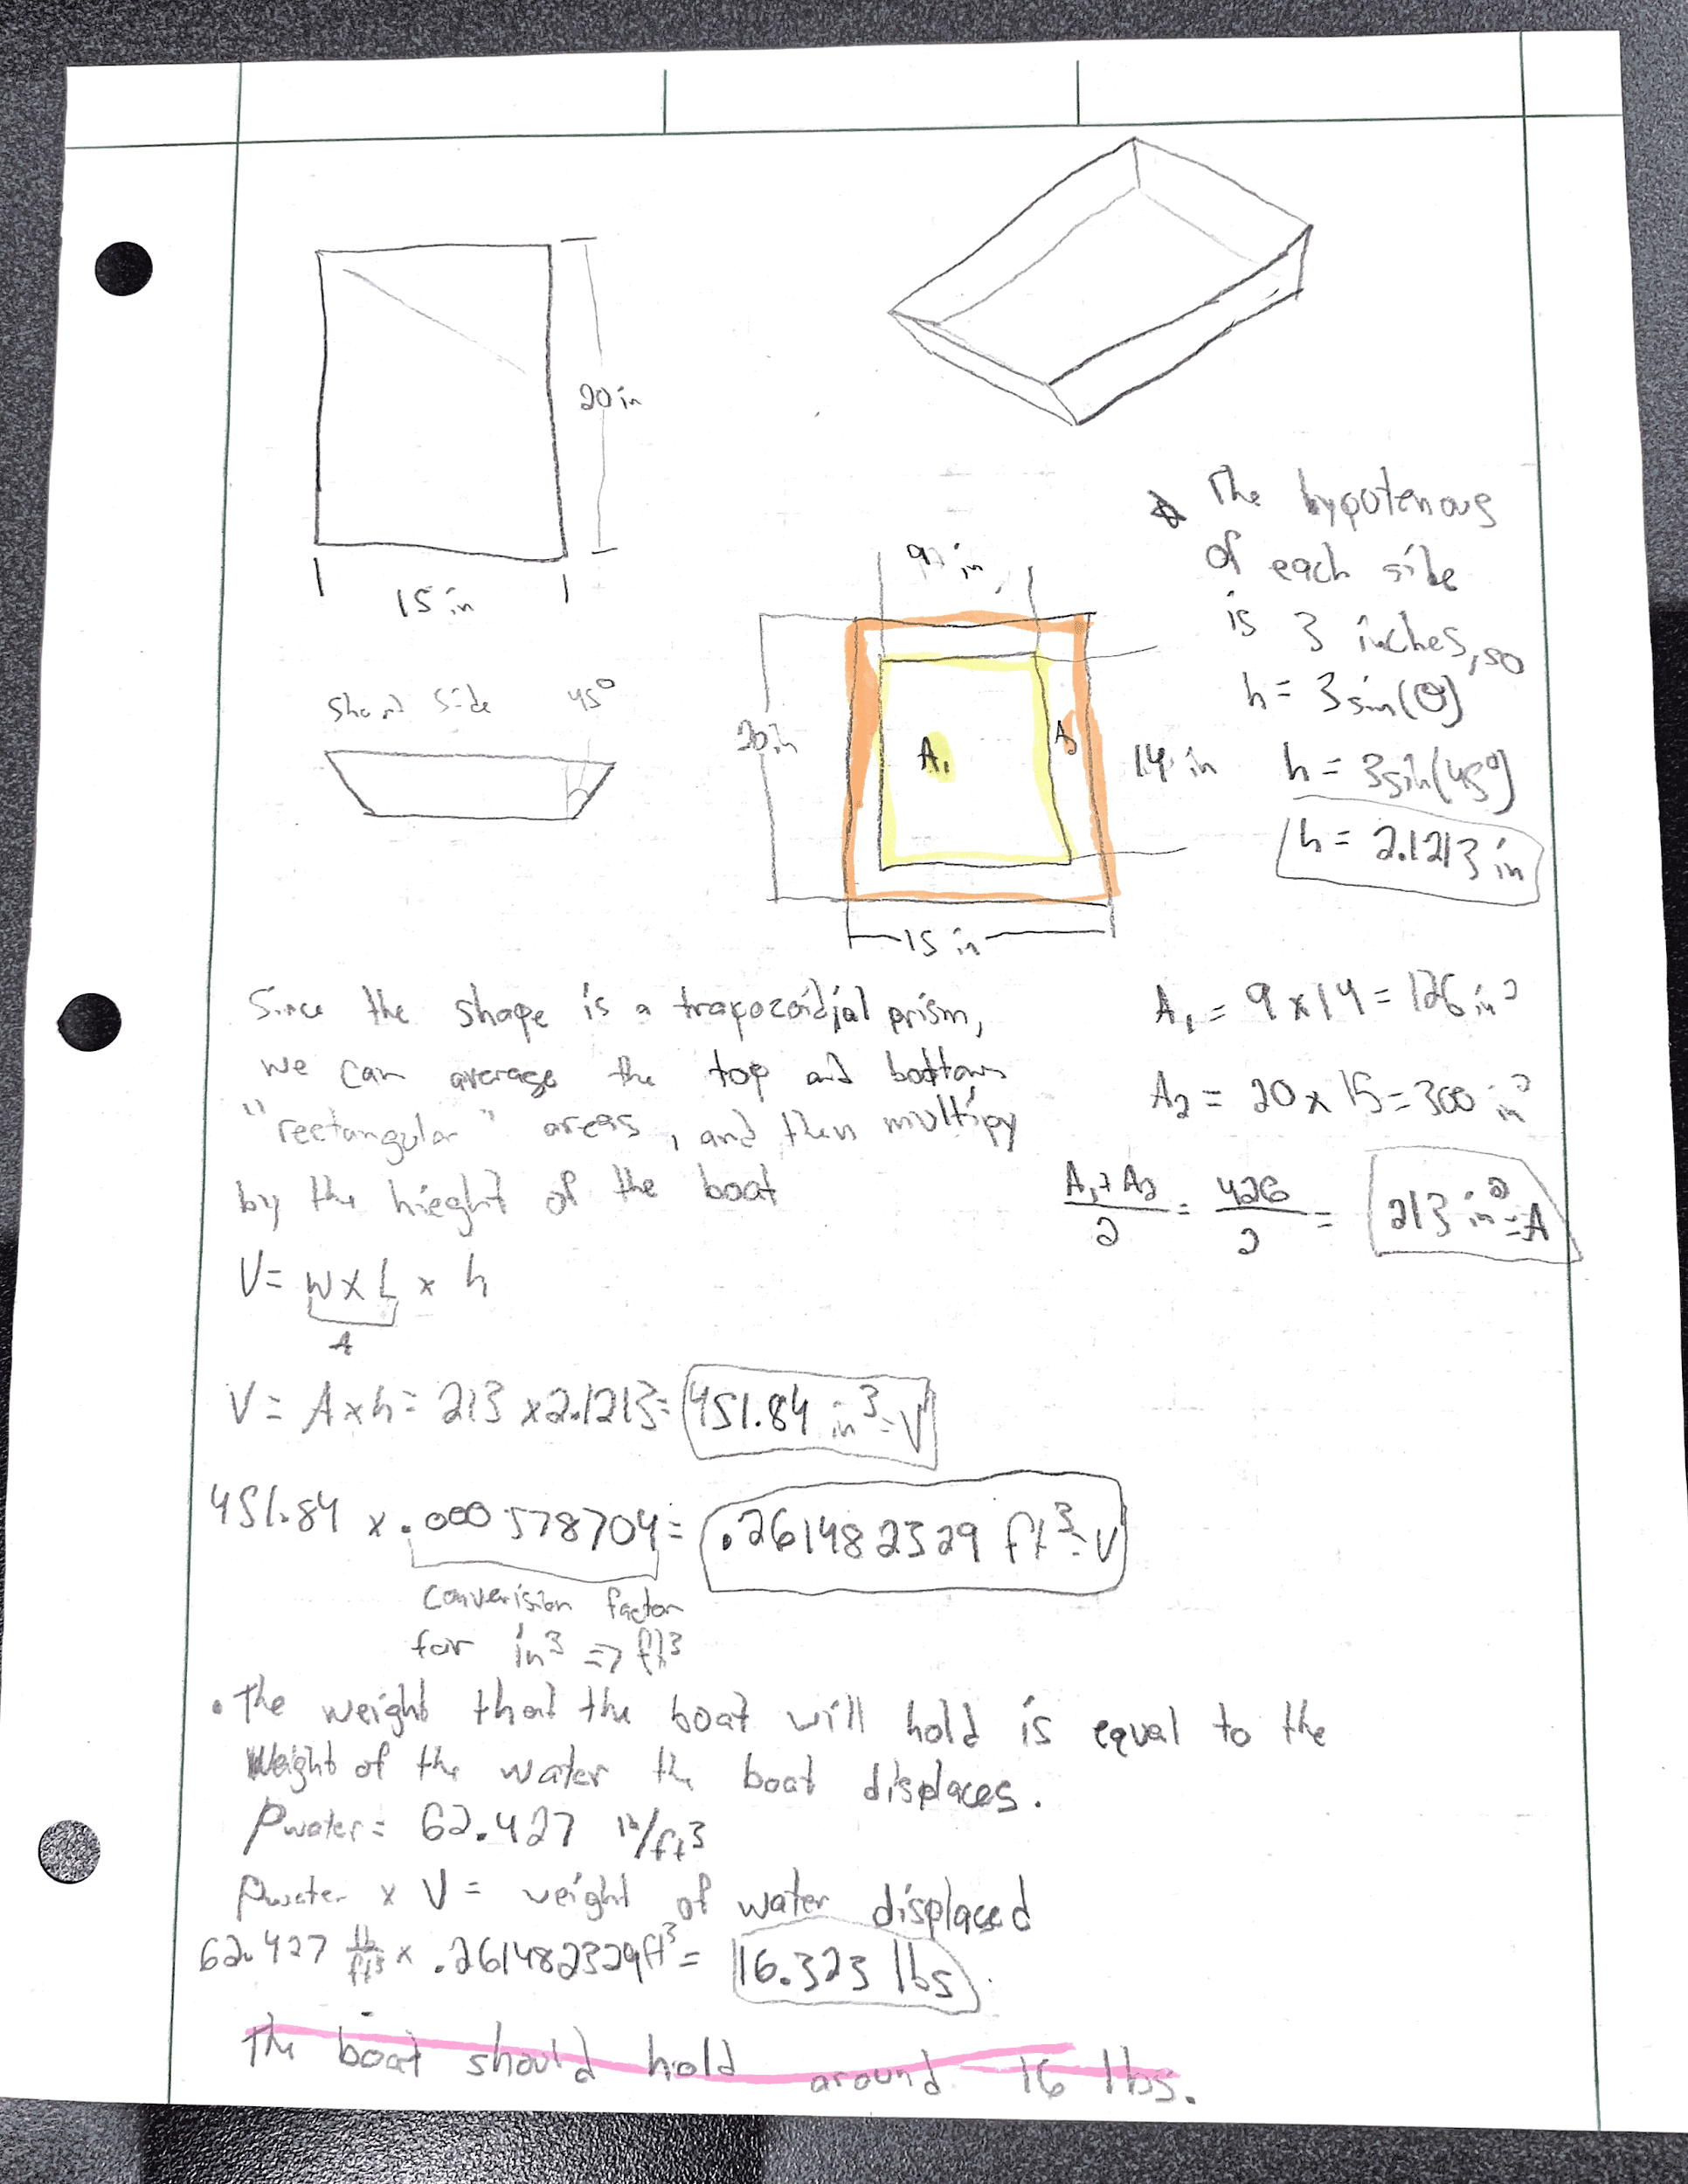 20 in
15 in
Short Side 45°
9 in
20 in
A₁
A₂
14 in
15 in
The hypotenous
of each side
is 3 inches, so
h = 3 sin(θ)
h = 3sin(45°)
h = 2.1213 in
Since the shape is a trapozoidjal prism,
we can average the top and bottom
"rectangular" areas, and then multipy
by the hieght of the boat
A₁ = 9 x 14 = 126 in²
A₂ = 20 x 15 = 300 in²
(A₁ + A₂)/2 = 426/2 = 213 in² = A
V = W x L x h
A
V = A x h = 213 x 2.1213 = 451.84 in³ = V
451.84 x .000578704 = .261482329 ft³ = V
Converision factor
for in³ => ft³
• The weight that the boat will hold is equal to the
Weight of the water the boat displaces.
ρwater = 62.427 lb/ft³
ρwater x V = weight of water displaced
62.427 lb/ft³ x .261482329 ft³ = 16.323 lbs.
The boat should hold around 16 lbs.